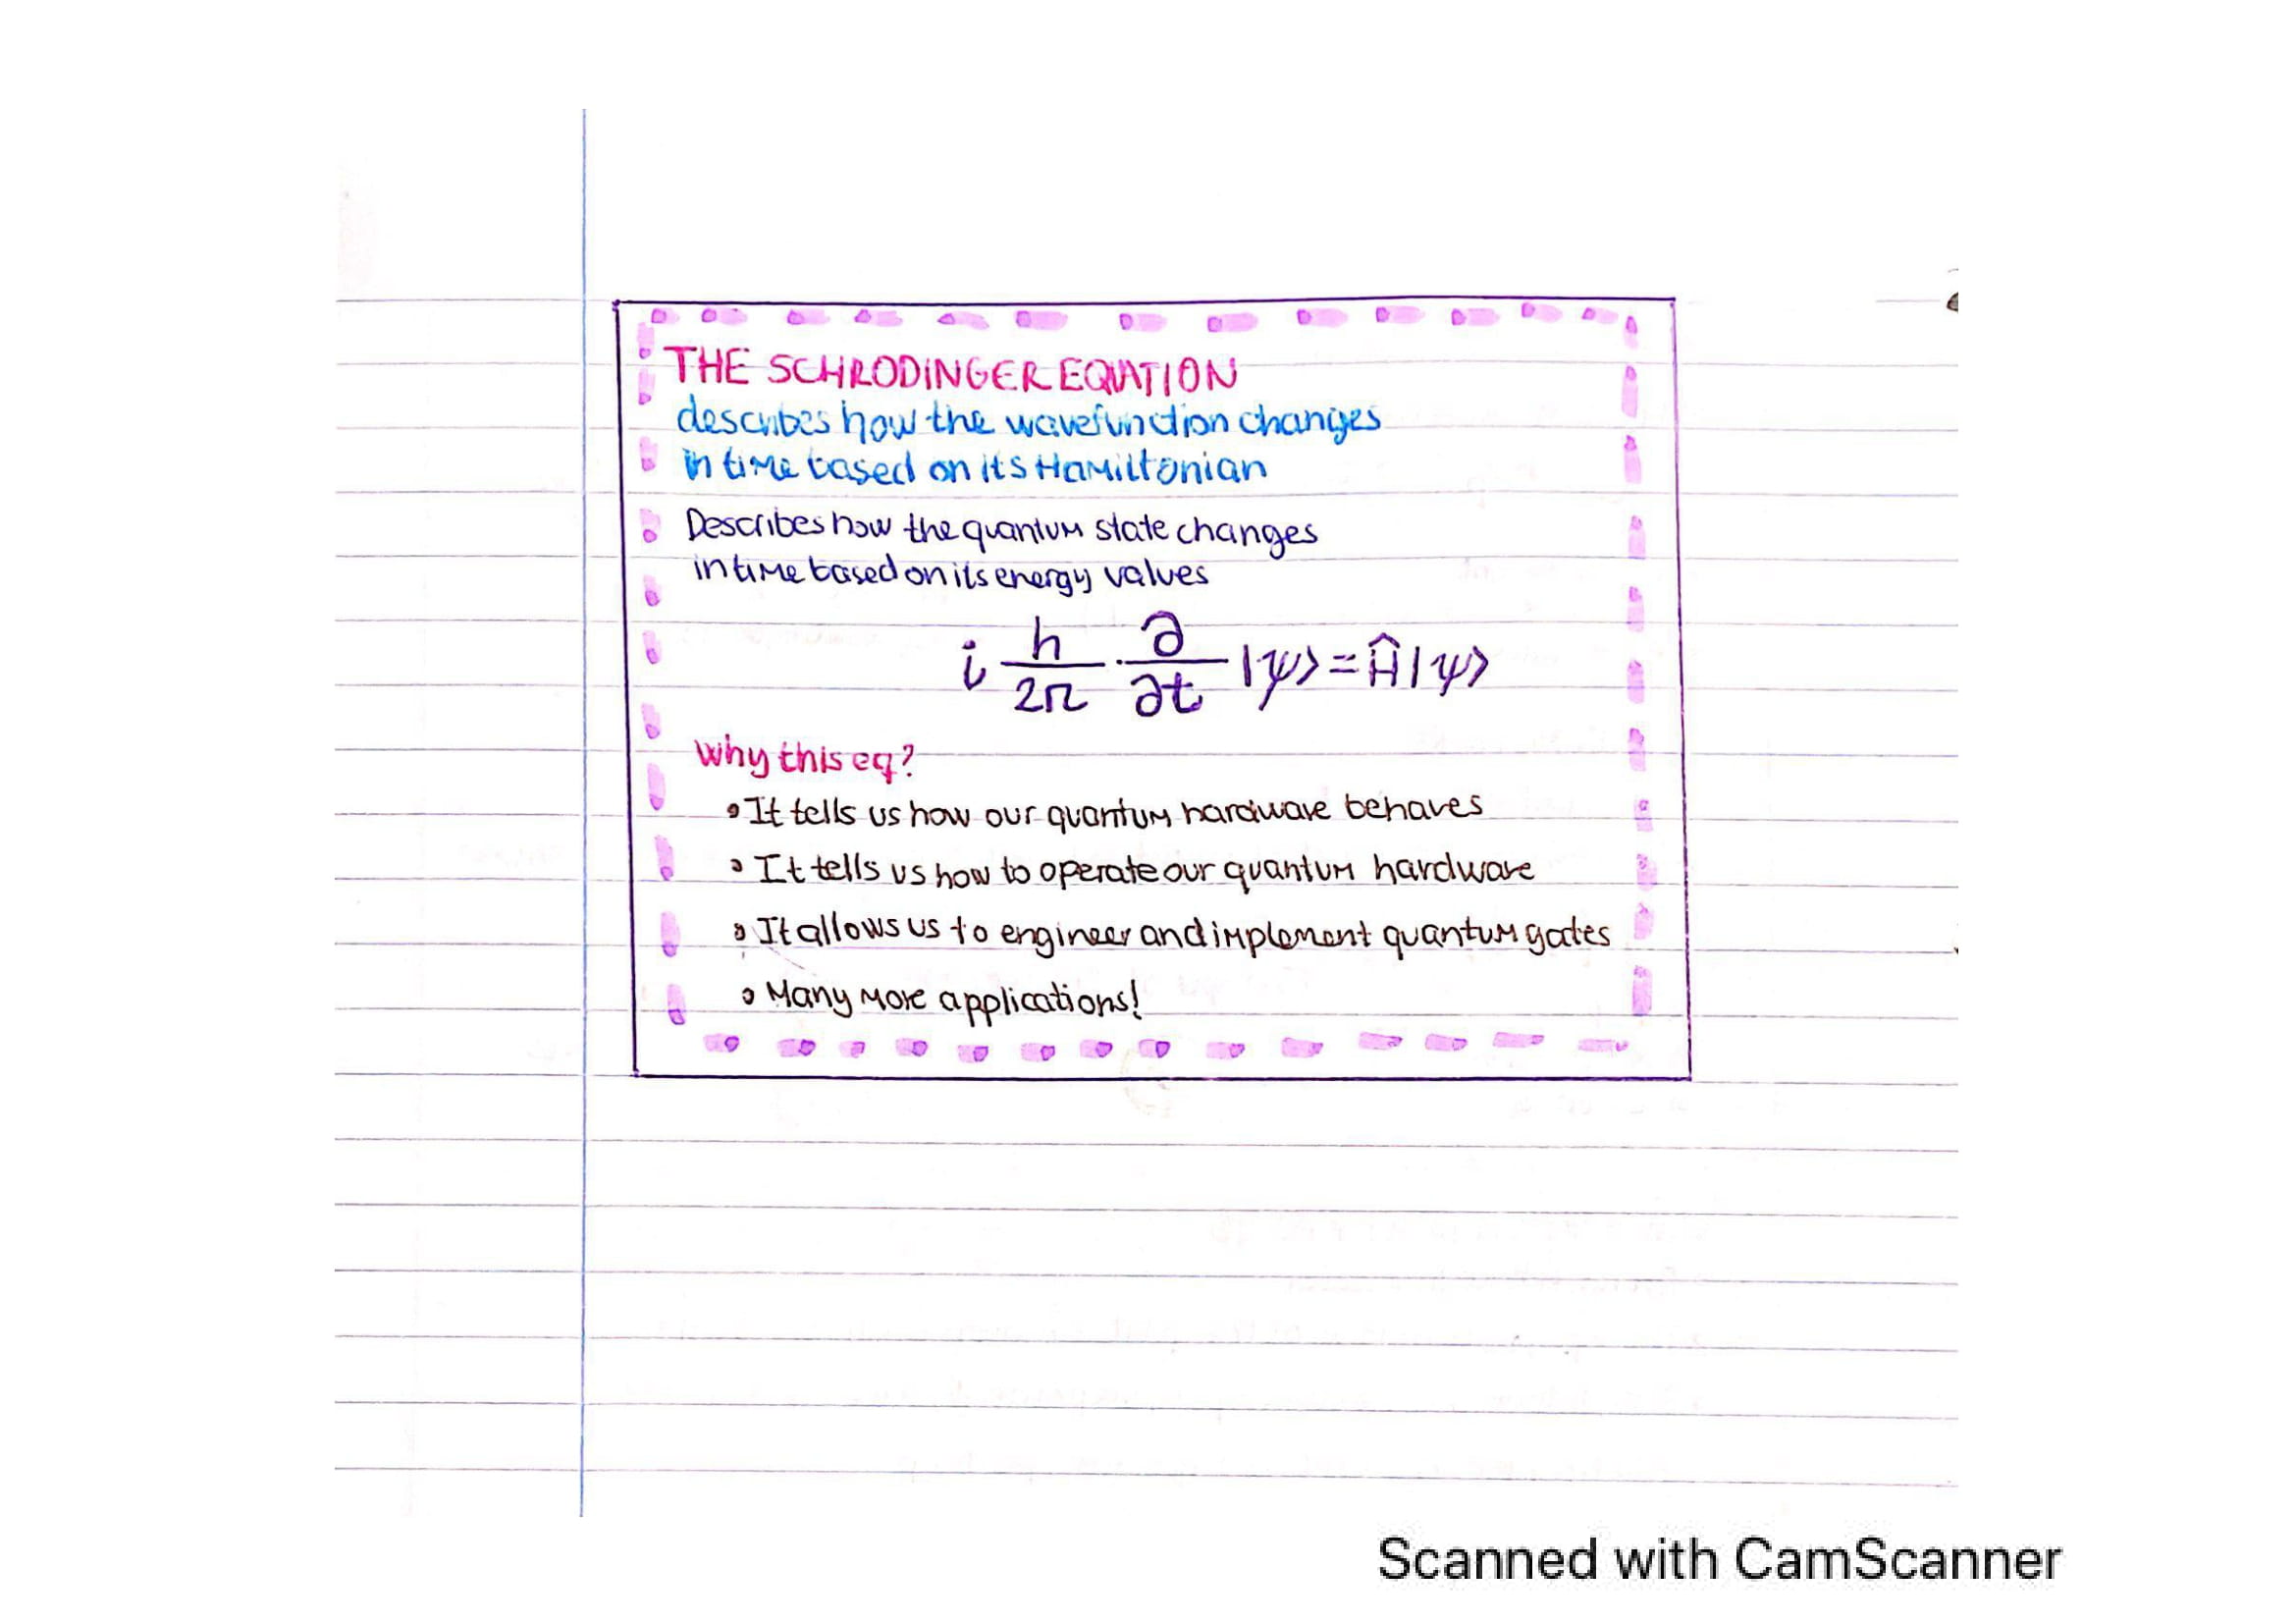 THE SCHRODINGER EQUATION
describes how the wavefunction changes
in time based on its Hamiltonian
Describes how the quantum state changes
in time based on its energy values
i h/2π · ∂/∂t |ψ⟩ = Ĥ |ψ⟩
Why this eq?
• It tells us how our quantum hardware behaves
• It tells us how to operate our quantum hardware
• It allows us to engineer and implement quantum gates
• Many more applications!
Scanned with CamScanner